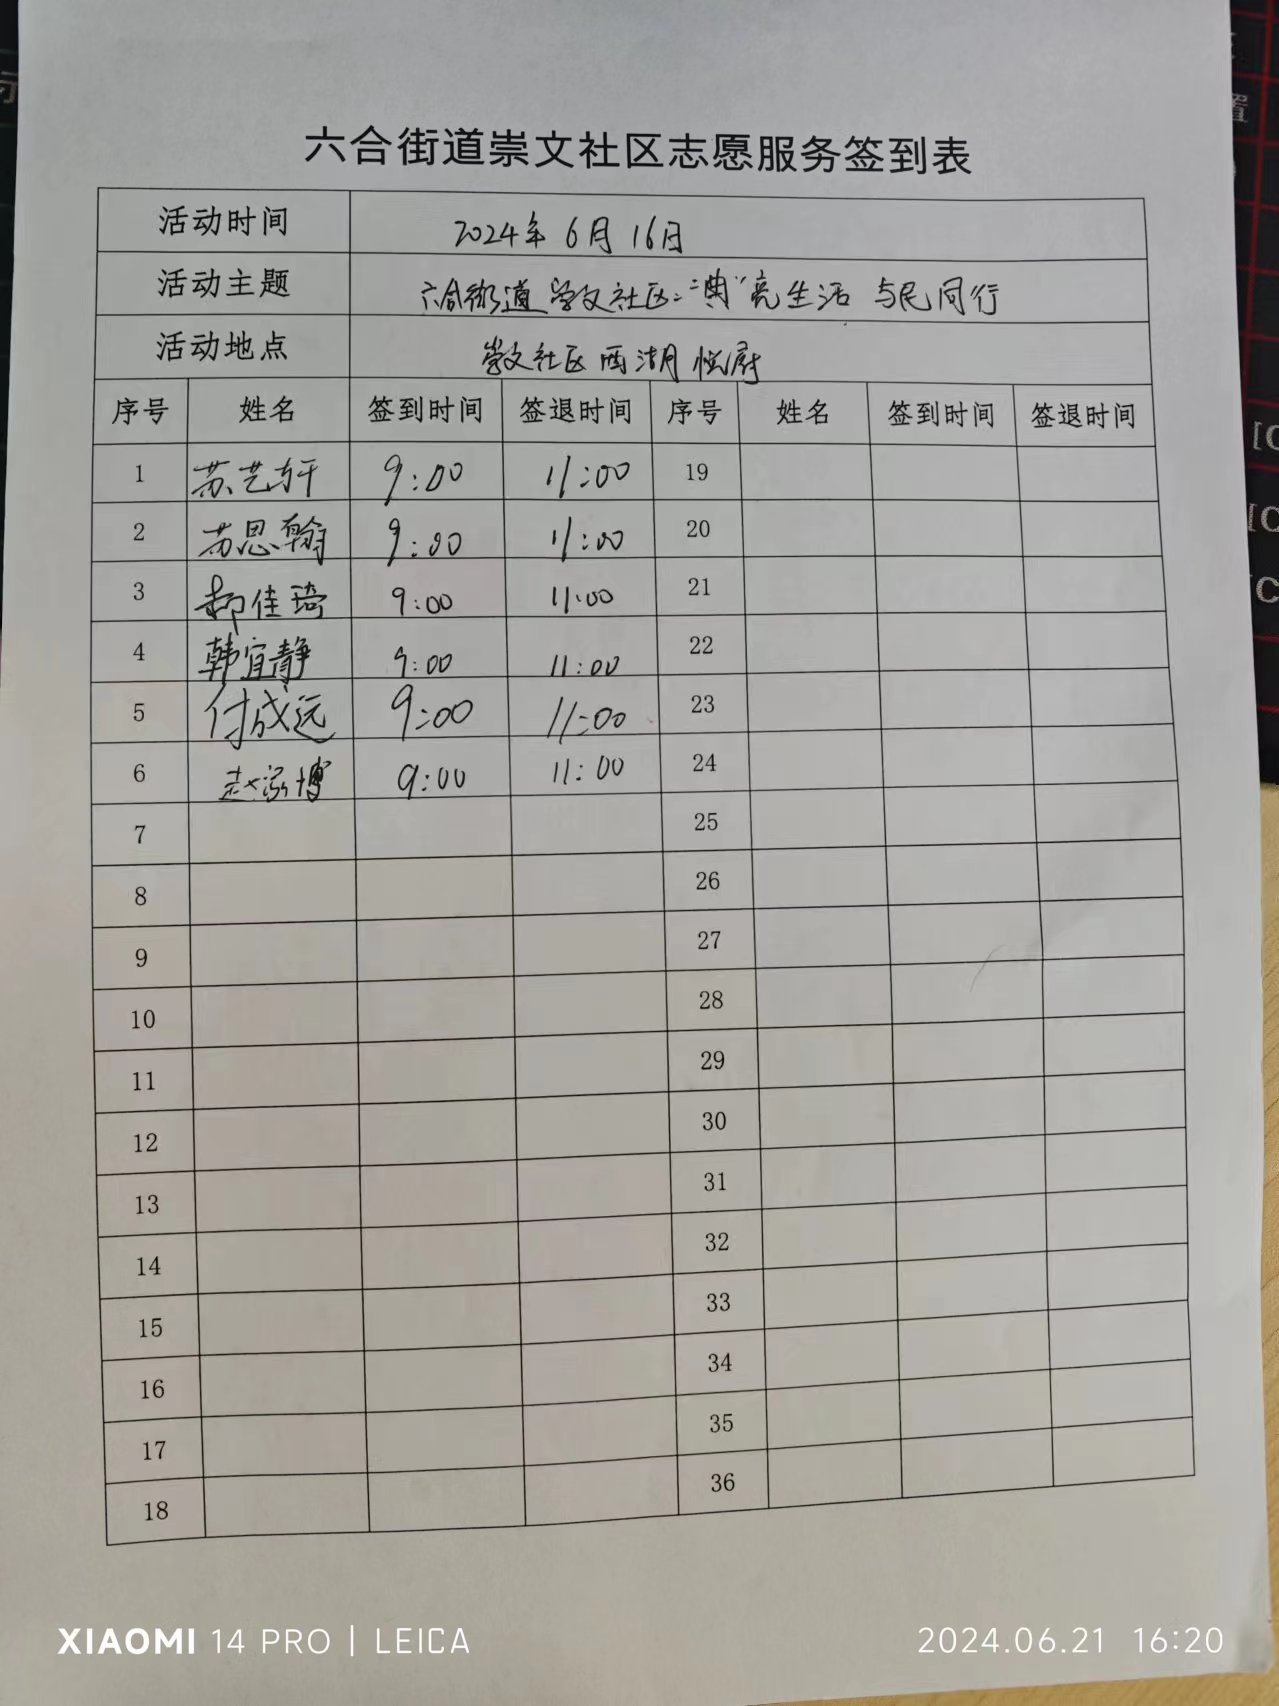 六合街道崇文社区志愿服务签到表
活动时间 2024年6月16日
活动主题 六合街道崇文社区:"典"亮生活 与民同行
活动地点 崇文社区西湖
序号 姓名 签到时间 签退时间 序号 姓名 签到时间 签退时间
1 苏艺轩 9:00 11:00 19
2 苏思翰 9:00 11:00 20
3 郝佳琦 9:00 11:00 21
4 韩宜静 9:00 11:00 22
5 付成远 9:00 11:00 23
6 赵泓博 9:00 11:00 24
7 25
8 26
9 27
10 28
11 29
12 30
13 31
14 32
15 33
16 34
17 35
18 36
置
[C
[C
[C
XIAOMI 14 PRO | LEICA 2024.06.21 16:20